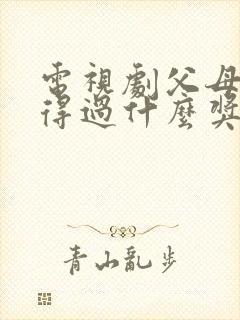 電視劇父母
得過什麼獎
青山亂步